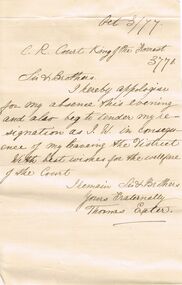 Oct 3/77
C. R. Court King of the Forest
3770
Sir & Brothers
I hereby apologise
for my absence this evening
and also beg to tender my re-
signation as J. W in consequ-
ence of my leaving the District
With best wishes for the welfare
of the Court
I remain Sir & Brothers
Yours Fraternally
Thomas